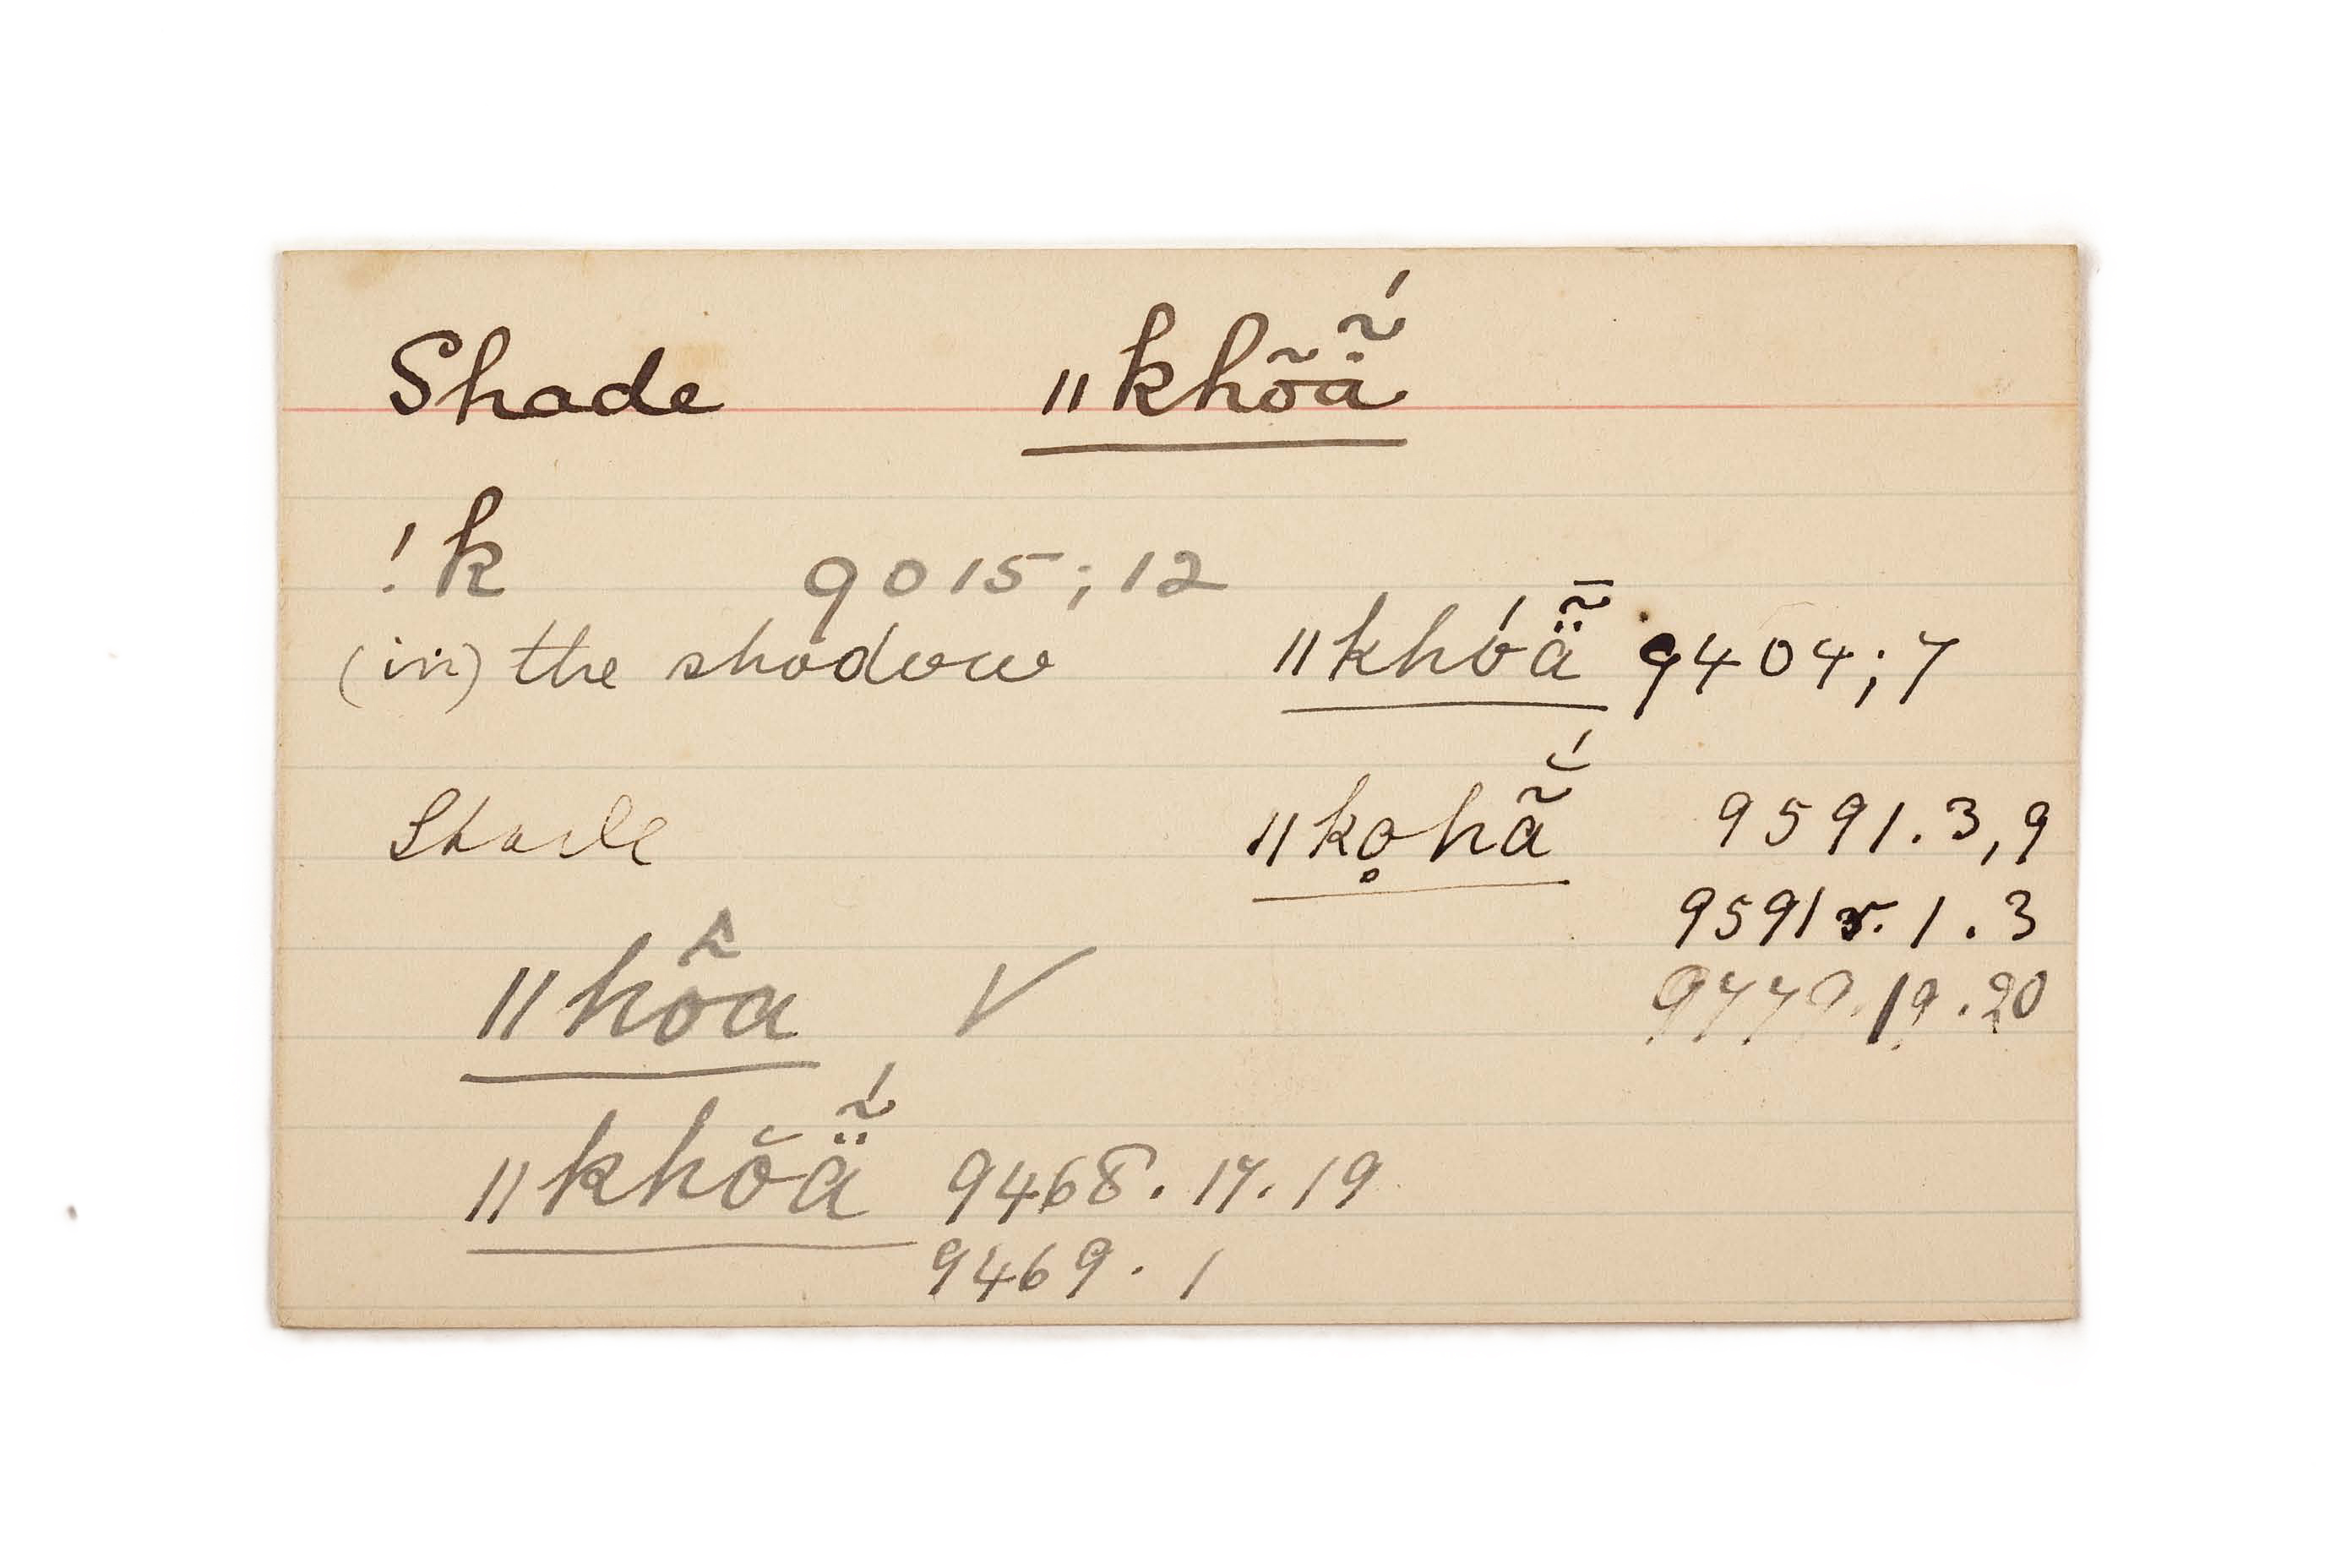 Shade ǁkhõȧ̃́
!k 9015;12
(in) the shadow ǁkhóä̃̄ 9404;7
Shade ǁko̥hã̆́ 9591.3,9
9591 1.3
ǁhõ̂a √ 19.20
ǁkhŏä̃́ 9468.17.19
9469.1